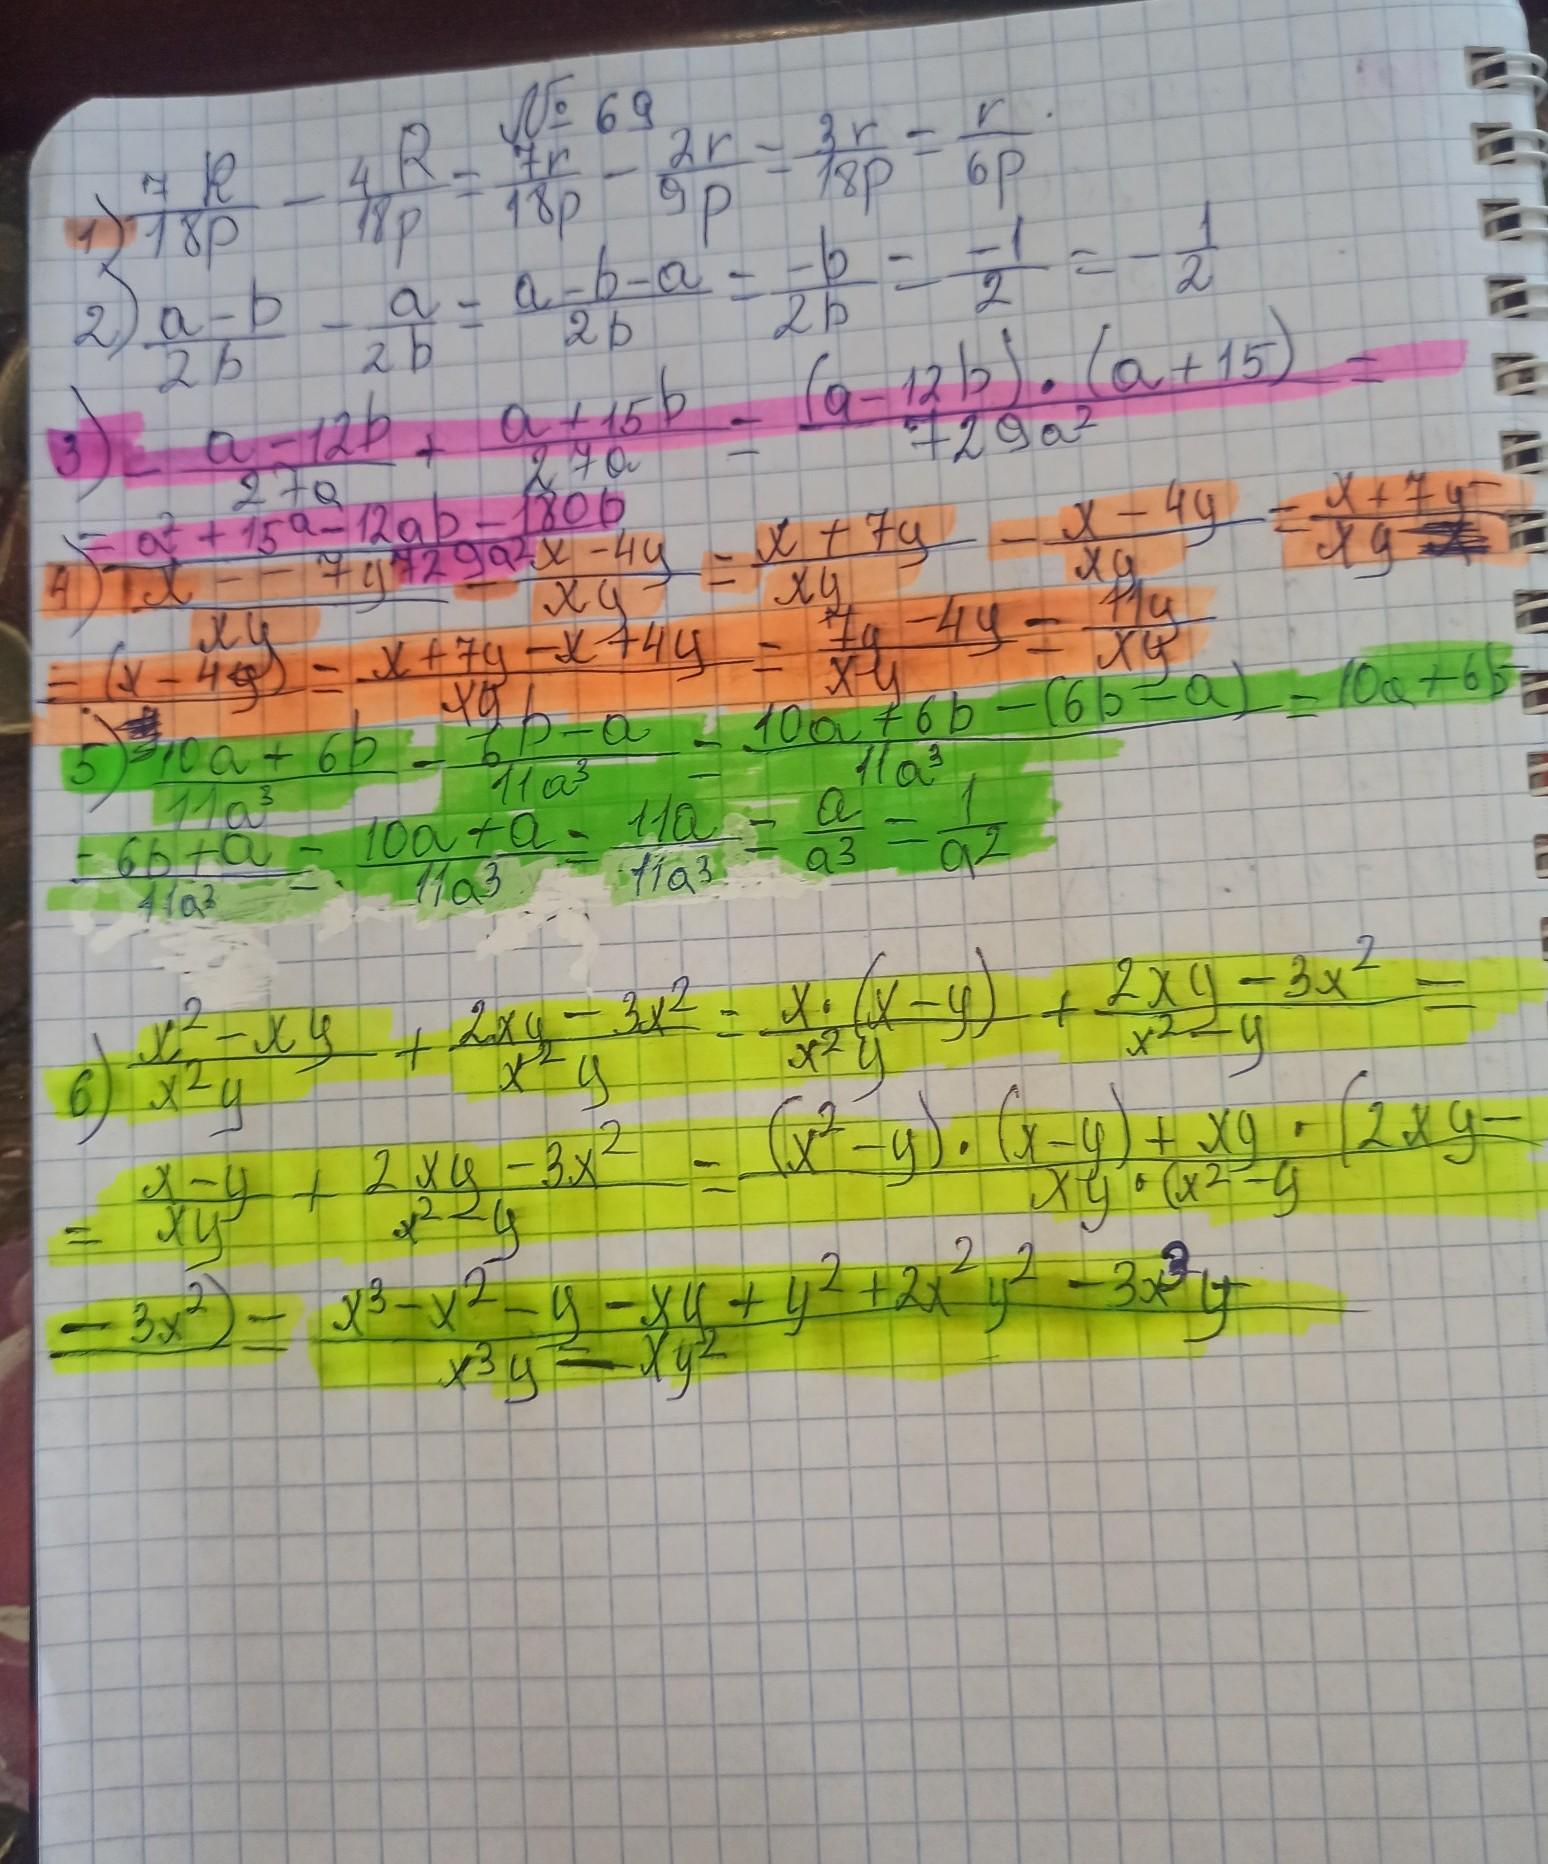 № 69
1) 7R/18p - 4R/18p = 7r/18p - 2r/9p = 3r/18p = r/6p.
2) a-b/2b - a/2b = a-b-a/2b = -b/2b = -1/2 = -1/2
3) - a-12b/27a + a+15b/27a = (a-12b)·(a+15)/729a² =
= a²+15a-12ab-180b/729a²
4) x--7y/xy - x-4y/xy = x+7y/xy - x-4y/xy = x+7y-/xy
= (x-4y) = x+7y-x+4y/xy = 7y-4y/xy = 11y/xy
5) 10a+6b/11a³ - 6b-a/11a³ = 10a+6b-(6b-a)/11a³ = 10a+6b-
-6b+a/11a³ = 10a+a/11a³ = 11a/11a³ = a/a³ = 1/a²
6) x²-xy/x²y + 2xy-3x²/x²y = x·(x-y)/x²y + 2xy-3x²/x²-y =
= x-y/xy + 2xy-3x²/x²-y = (x²-y)·(x-y)+xy·(2xy-/xy·(x²-y
-3x²) = x³-x²-y-xy+y²+2x²y²-3x³y/x³y-xy²